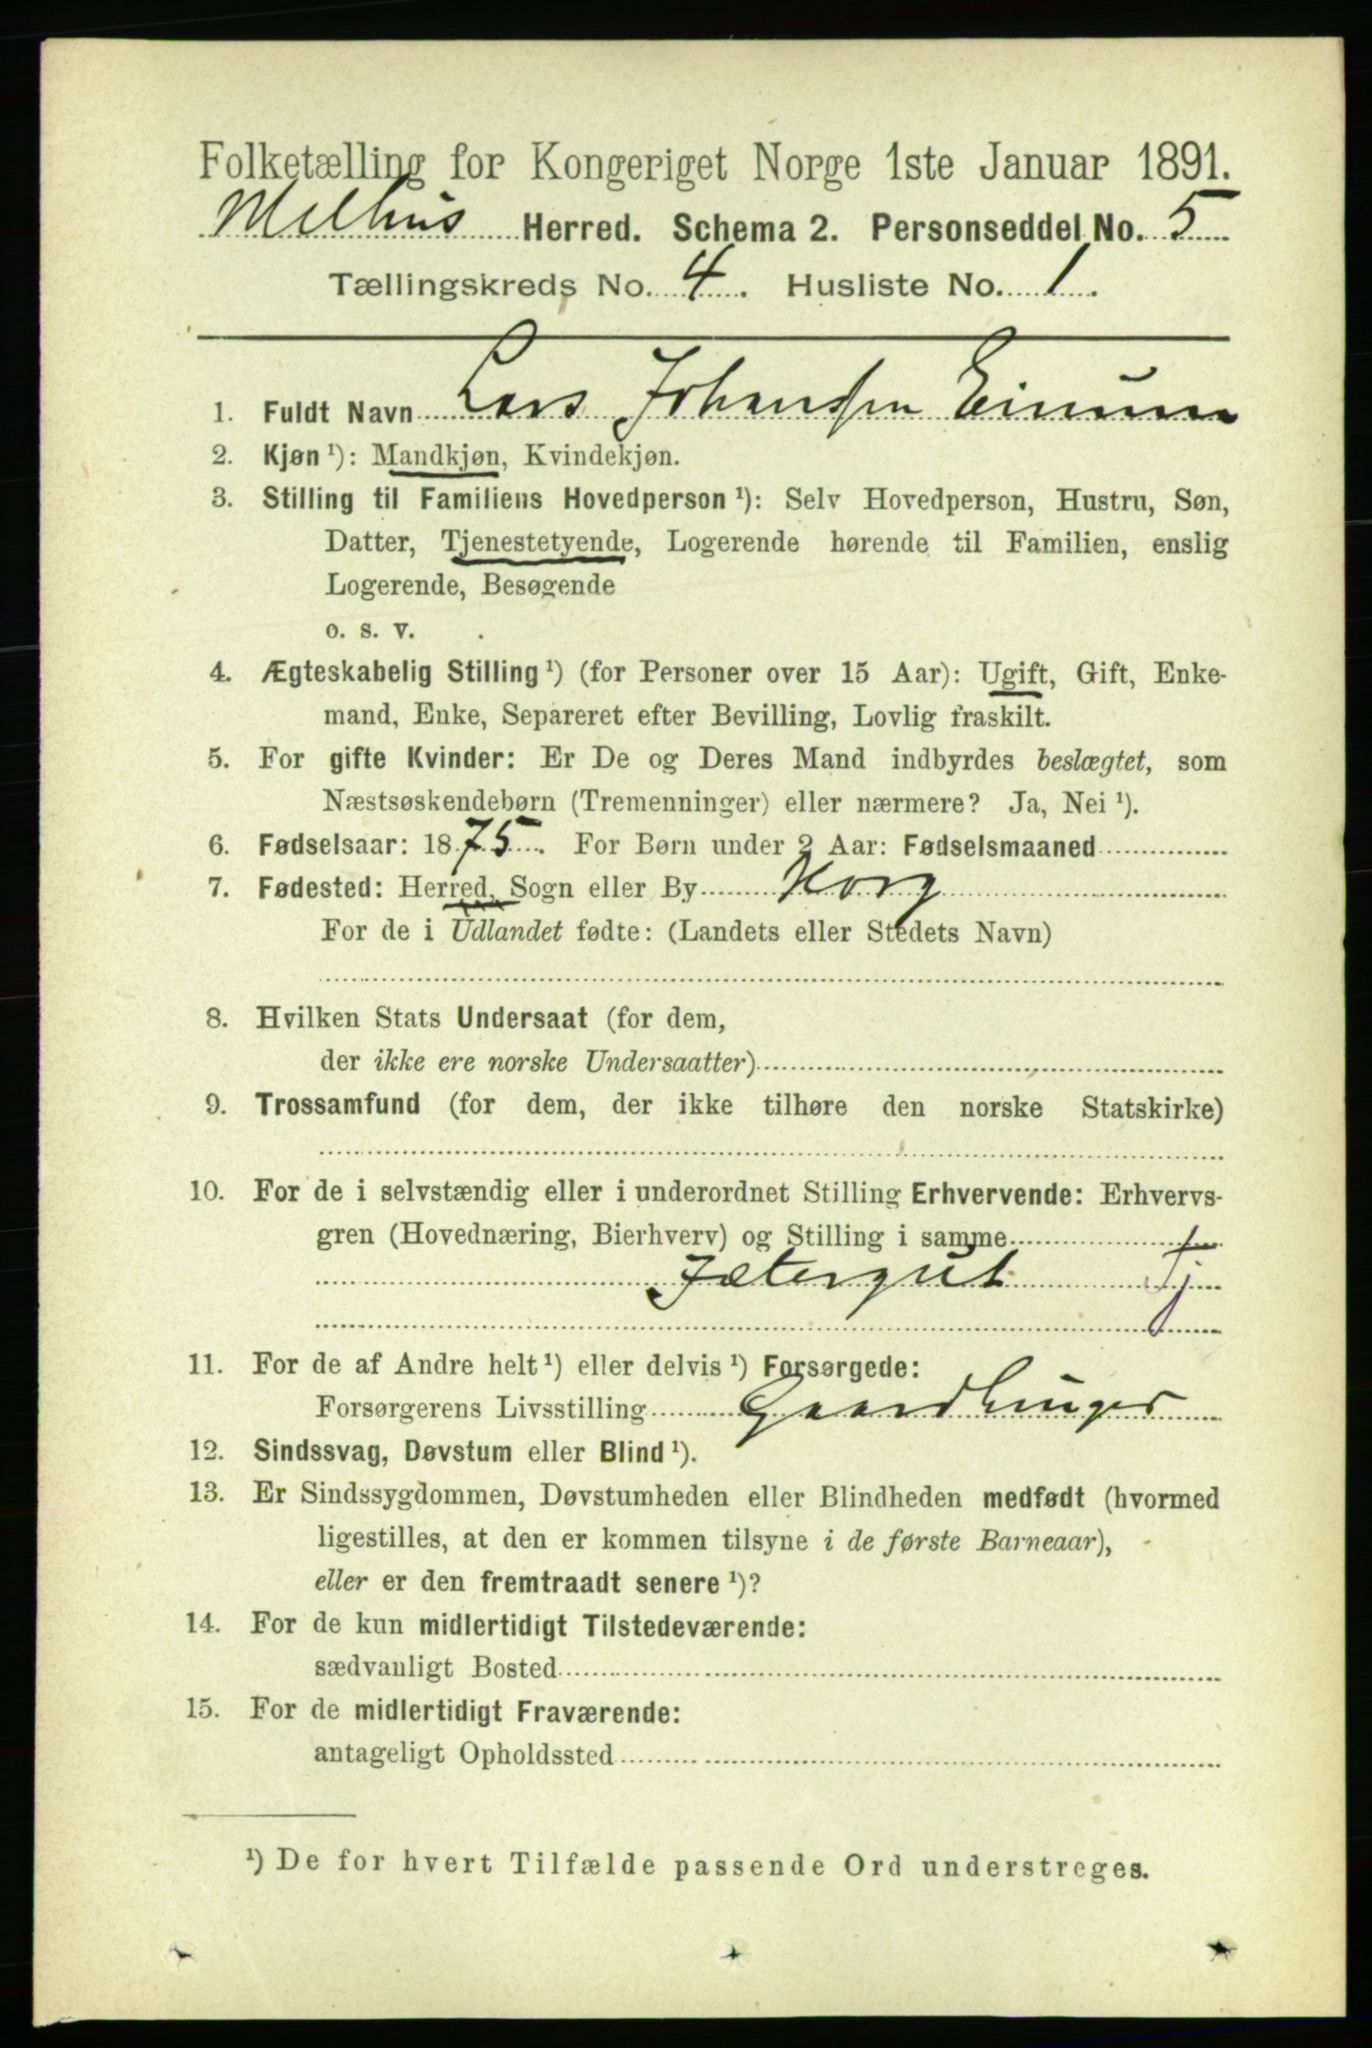 Folketælling for Kongeriget Norge 1ste Januar 1891.
Melhus Herred. Schema 2. Personseddel No. 5
Tællingskreds No. 4. Husliste No. 1.
1. Fuldt Navn Lars Johansen Einum
2. Kjøn ¹): Mandkjøn, Kvindekjøn.
3. Stilling til Familiens Hovedperson ¹): Selv Hovedperson, Hustru, Søn,
Datter, Tjenestetyende, Logerende hørende til Familien, enslig
Logerende, Besøgende
o. s. v.
4. Ægteskabelig Stilling ¹) (for Personer over 15 Aar): Ugift, Gift, Enke-
mand, Enke, Separeret efter Bevilling, Lovlig fraskilt.
5. For gifte Kvinder: Er De og Deres Mand indbyrdes beslægtet, som
Næstsøskendebørn (Tremenninger) eller nærmere? Ja, Nei ¹).
6. Fødselsaar: 1875. For Børn under 2 Aar: Fødselsmaaned
7. Fødested: Herred, Sogn eller By Horg
For de i Udlandet fødte: (Landets eller Stedets Navn)
8. Hvilken Stats Undersaat (for dem,
der ikke ere norske Undersaatter)
9. Trossamfund (for dem, der ikke tilhøre den norske Statskirke)
10. For de i selvstændig eller i underordnet Stilling Erhvervende: Erhvervs-
gren (Hovednæring, Bierhverv) og Stilling i samme
Jætergut Tj
11. For de af Andre helt ¹) eller delvis ¹) Forsørgede:
Forsørgerens Livsstilling Gaardbruger
12. Sindssvag, Døvstum eller Blind ¹).
13. Er Sindssygdommen, Døvstumheden eller Blindheden medfødt (hvormed
ligestilles, at den er kommen tilsyne i de første Barneaar),
eller er den fremtraadt senere ¹)?
14. For de kun midlertidigt Tilstedeværende:
sædvanligt Bosted
15. For de midlertidigt Fraværende:
antageligt Opholdssted
¹) De for hvert Tilfælde passende Ord understreges.